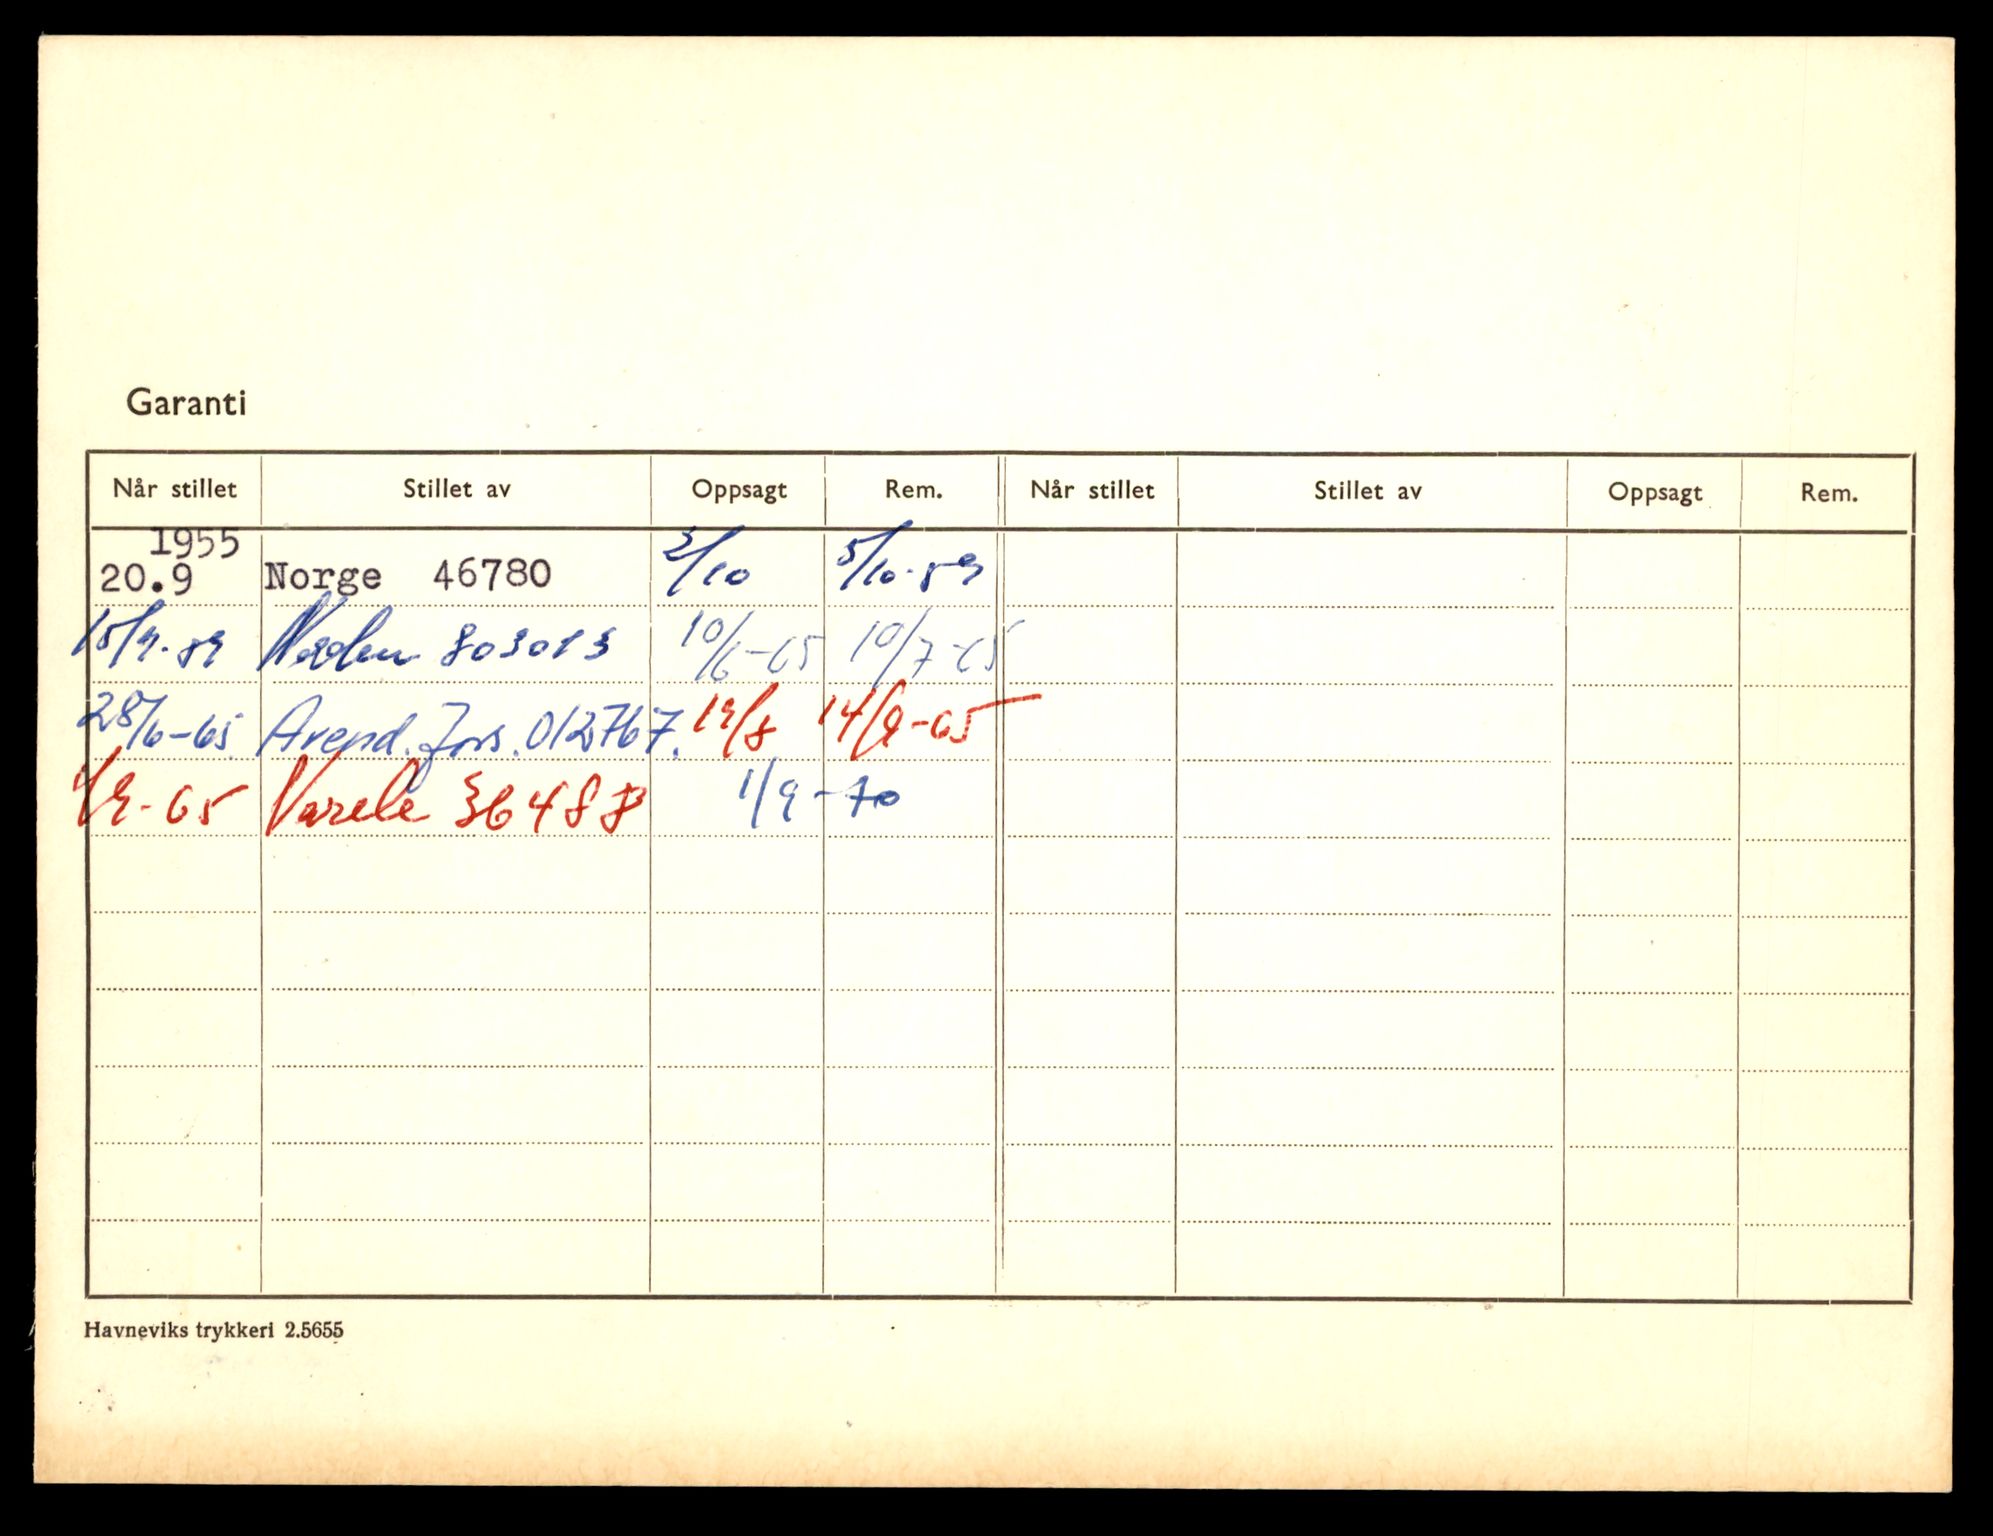 Garanti
Når stillet Stillet av Oppsagt Rem. Når stillet Stillet av Oppsagt Rem.
1955
20.9 Norge 46780 2/10 5/10-59
15/9-59 Norden 803013 10/6-65 10/7-65
28/6-65 Arend. Fors. 012767. 19/8 14/9-65
1/9-65 Varele 36488 1/9-70
Havneviks trykkeri 2.5655